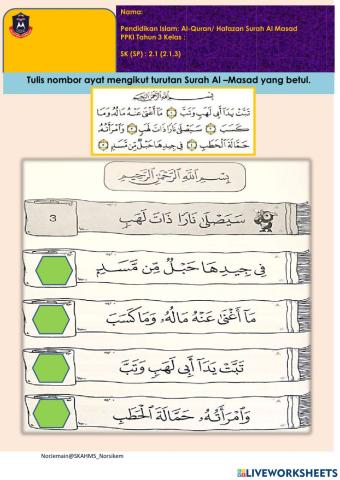 Nama:
Pendidikan Islam: Al-Quran/ Hafazan Surah Al Masad
PPKI Tahun 3 Kelas :
SK (SP) : 2.1 (2.1.3)
Tulis nombor ayat mengikut turutan Surah Al –Masad yang betul.
بِسْمِ اللَّهِ الرَّحْمَٰنِ الرَّحِيمِ
تَبَّتْ يَدَا أَبِي لَهَبٍ وَتَبَّ ١ مَا أَغْنَىٰ عَنْهُ مَالُهُ وَمَا
كَسَبَ ٢ سَيَصْلَىٰ نَارًا ذَاتَ لَهَبٍ ٣ وَامْرَأَتُهُ
حَمَّالَةَ الْحَطَبِ ٤ فِي جِيدِهَا حَبْلٌ مِّن مَّسَدٍ ٥
بِسْمِ اللَّهِ الرَّحْمَٰنِ الرَّحِيمِ
3 سَيَصْلَىٰ نَارًا ذَاتَ لَهَبٍ
فِي جِيدِهَا حَبْلٌ مِّن مَّسَدٍ
مَا أَغْنَىٰ عَنْهُ مَالُهُ وَمَا كَسَبَ
تَبَّتْ يَدَا أَبِي لَهَبٍ وَتَبَّ
وَامْرَأَتُهُ حَمَّالَةَ الْحَطَبِ
Notjemain@SKAHMS_Norsikem
LIVEWORKSHEETS